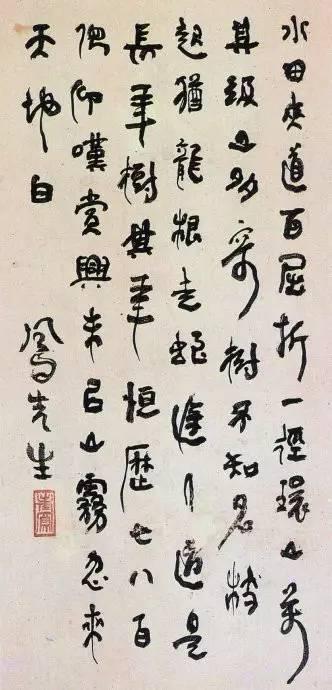 水田夾道百屈折一逕環山萬
其級山多奇樹不知名枝
起猶龍根走蛇逢人道是
長年樹其年恒歷七八百
俛仰嘆賞興未已山霧忽來
天地白
鳳先生